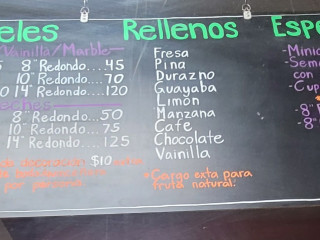 eles
Vainilla/Marble
8" Redondo....45
10" Redondo....70
14" Redondo....120
eches
8" Redondo....50
10" Redondo....75
14" Redondo...125
$10
por
Rellenos
Fresa
Pina
Durazno
Guayaba
Limón
Manzana
Cafe
Chocolate
Vainilla
*Cargo exta para
fruta natural.
Espe
-Mini
-Sem
con
-Cup
-8"
-8"